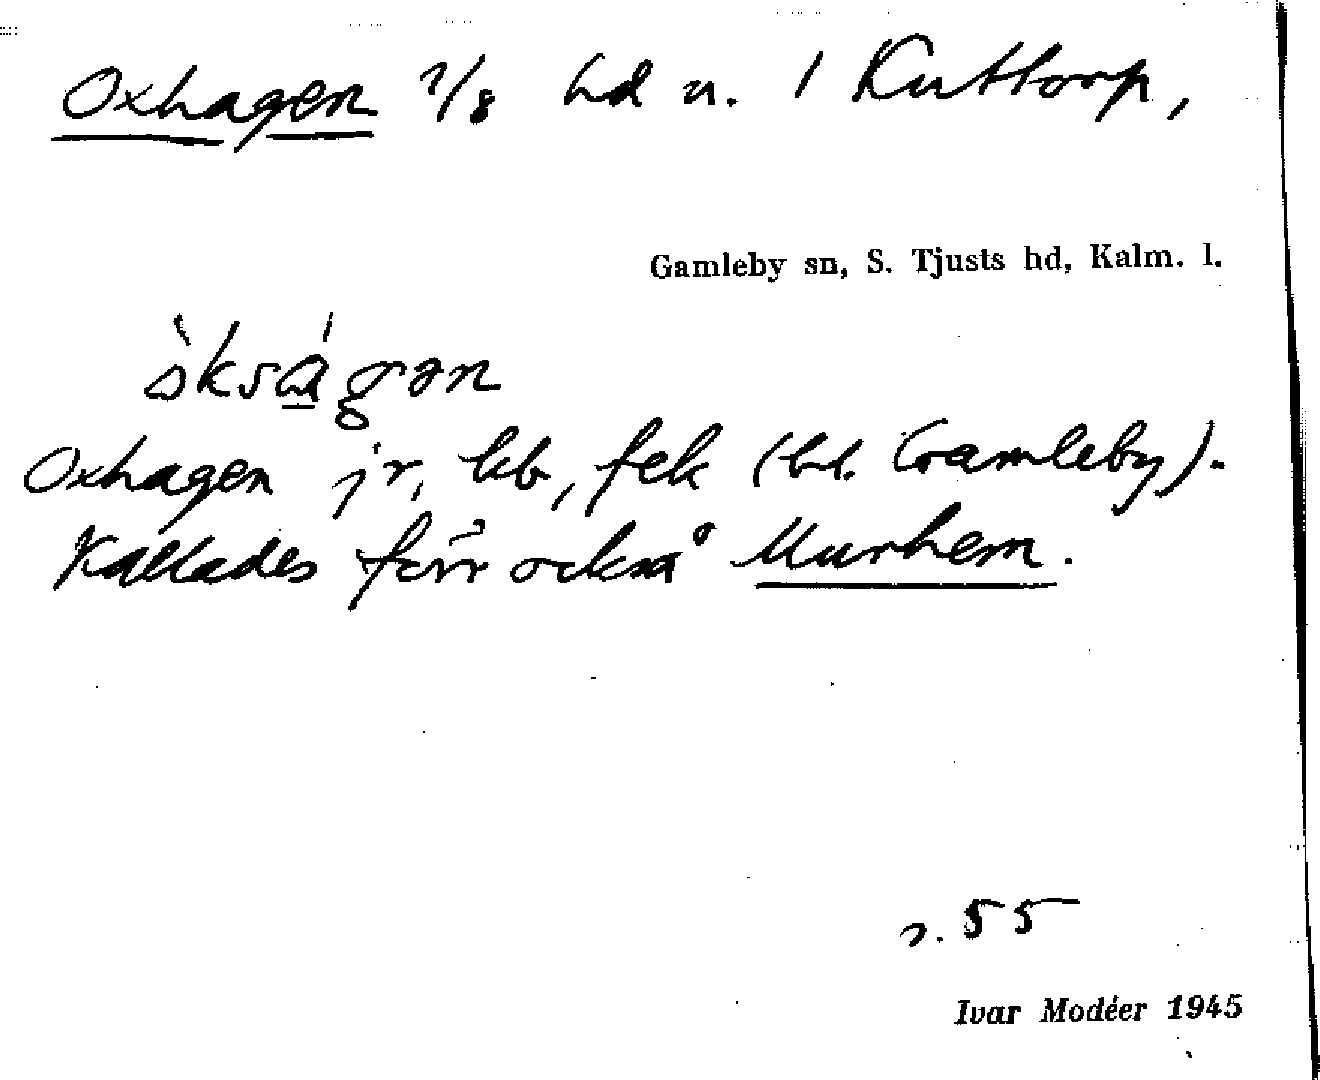 Oxhagen 1/8 hd u. 1 Kuttorp,
Gamleby sn, S. Tjusts hd, Kalm. l.
Oxhagen jr, kb, fek (bl. Gamleby).
Kallades förr också Murhem.
s. 55
Ivar Modéer 1945